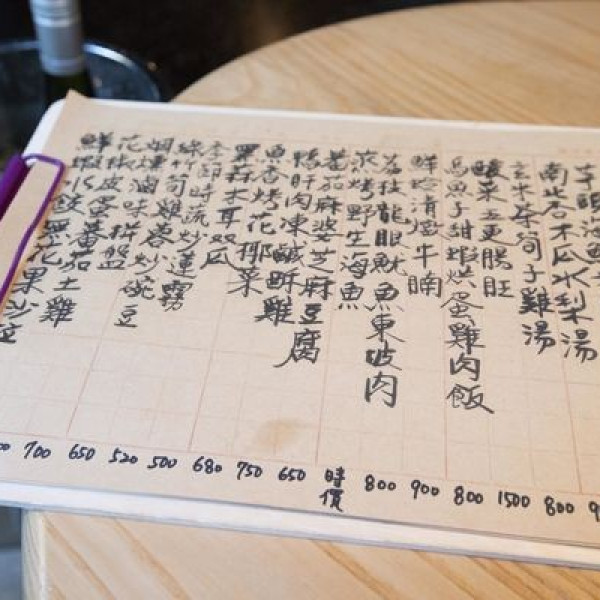 芋頭海
南北杏木瓜水梨湯
玄米茶筍子雞湯
酸菜五更腸旺
烏魚子甜蝦烘蛋雞肉飯
鮮蛤清燉牛腩
荔枝龍眼魷魚東坡肉
烤野生海魚
蕃茄麻婆芝麻豆腐
鴨肝肉凍鹹酥雞
魚香烤花椰菜
木耳双瓜
季節時蔬炒蓮霧
綠竹筍雞蓉炒碗豆
煙燻滷味拼盤
花椒皮蛋蕃茄土雞
鮮蝦水餃無花果沙拉
800
1500
800
900
800
時價
650
750
680
500
520
650
700